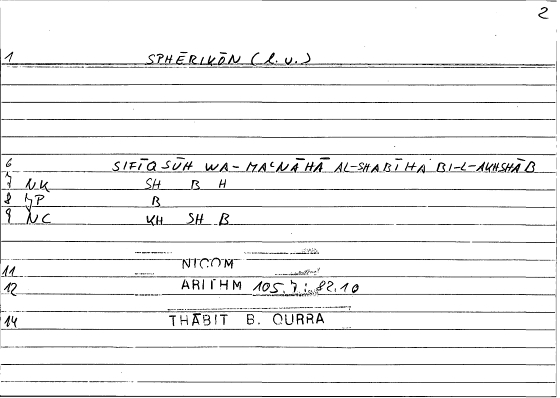 2
1 SPHĒRIKŌN (l.v.)
6 SIFĪQSŪH WA-MAʿNĀHĀ AL-SHABĪHA BI-L-AKHSHĀB
7 NK SH B H
8 JP B
9 NC KH SH B
NICOM
11
12 ARITHM 105.7 : 82.10
14 THĀBIT B. QURRA